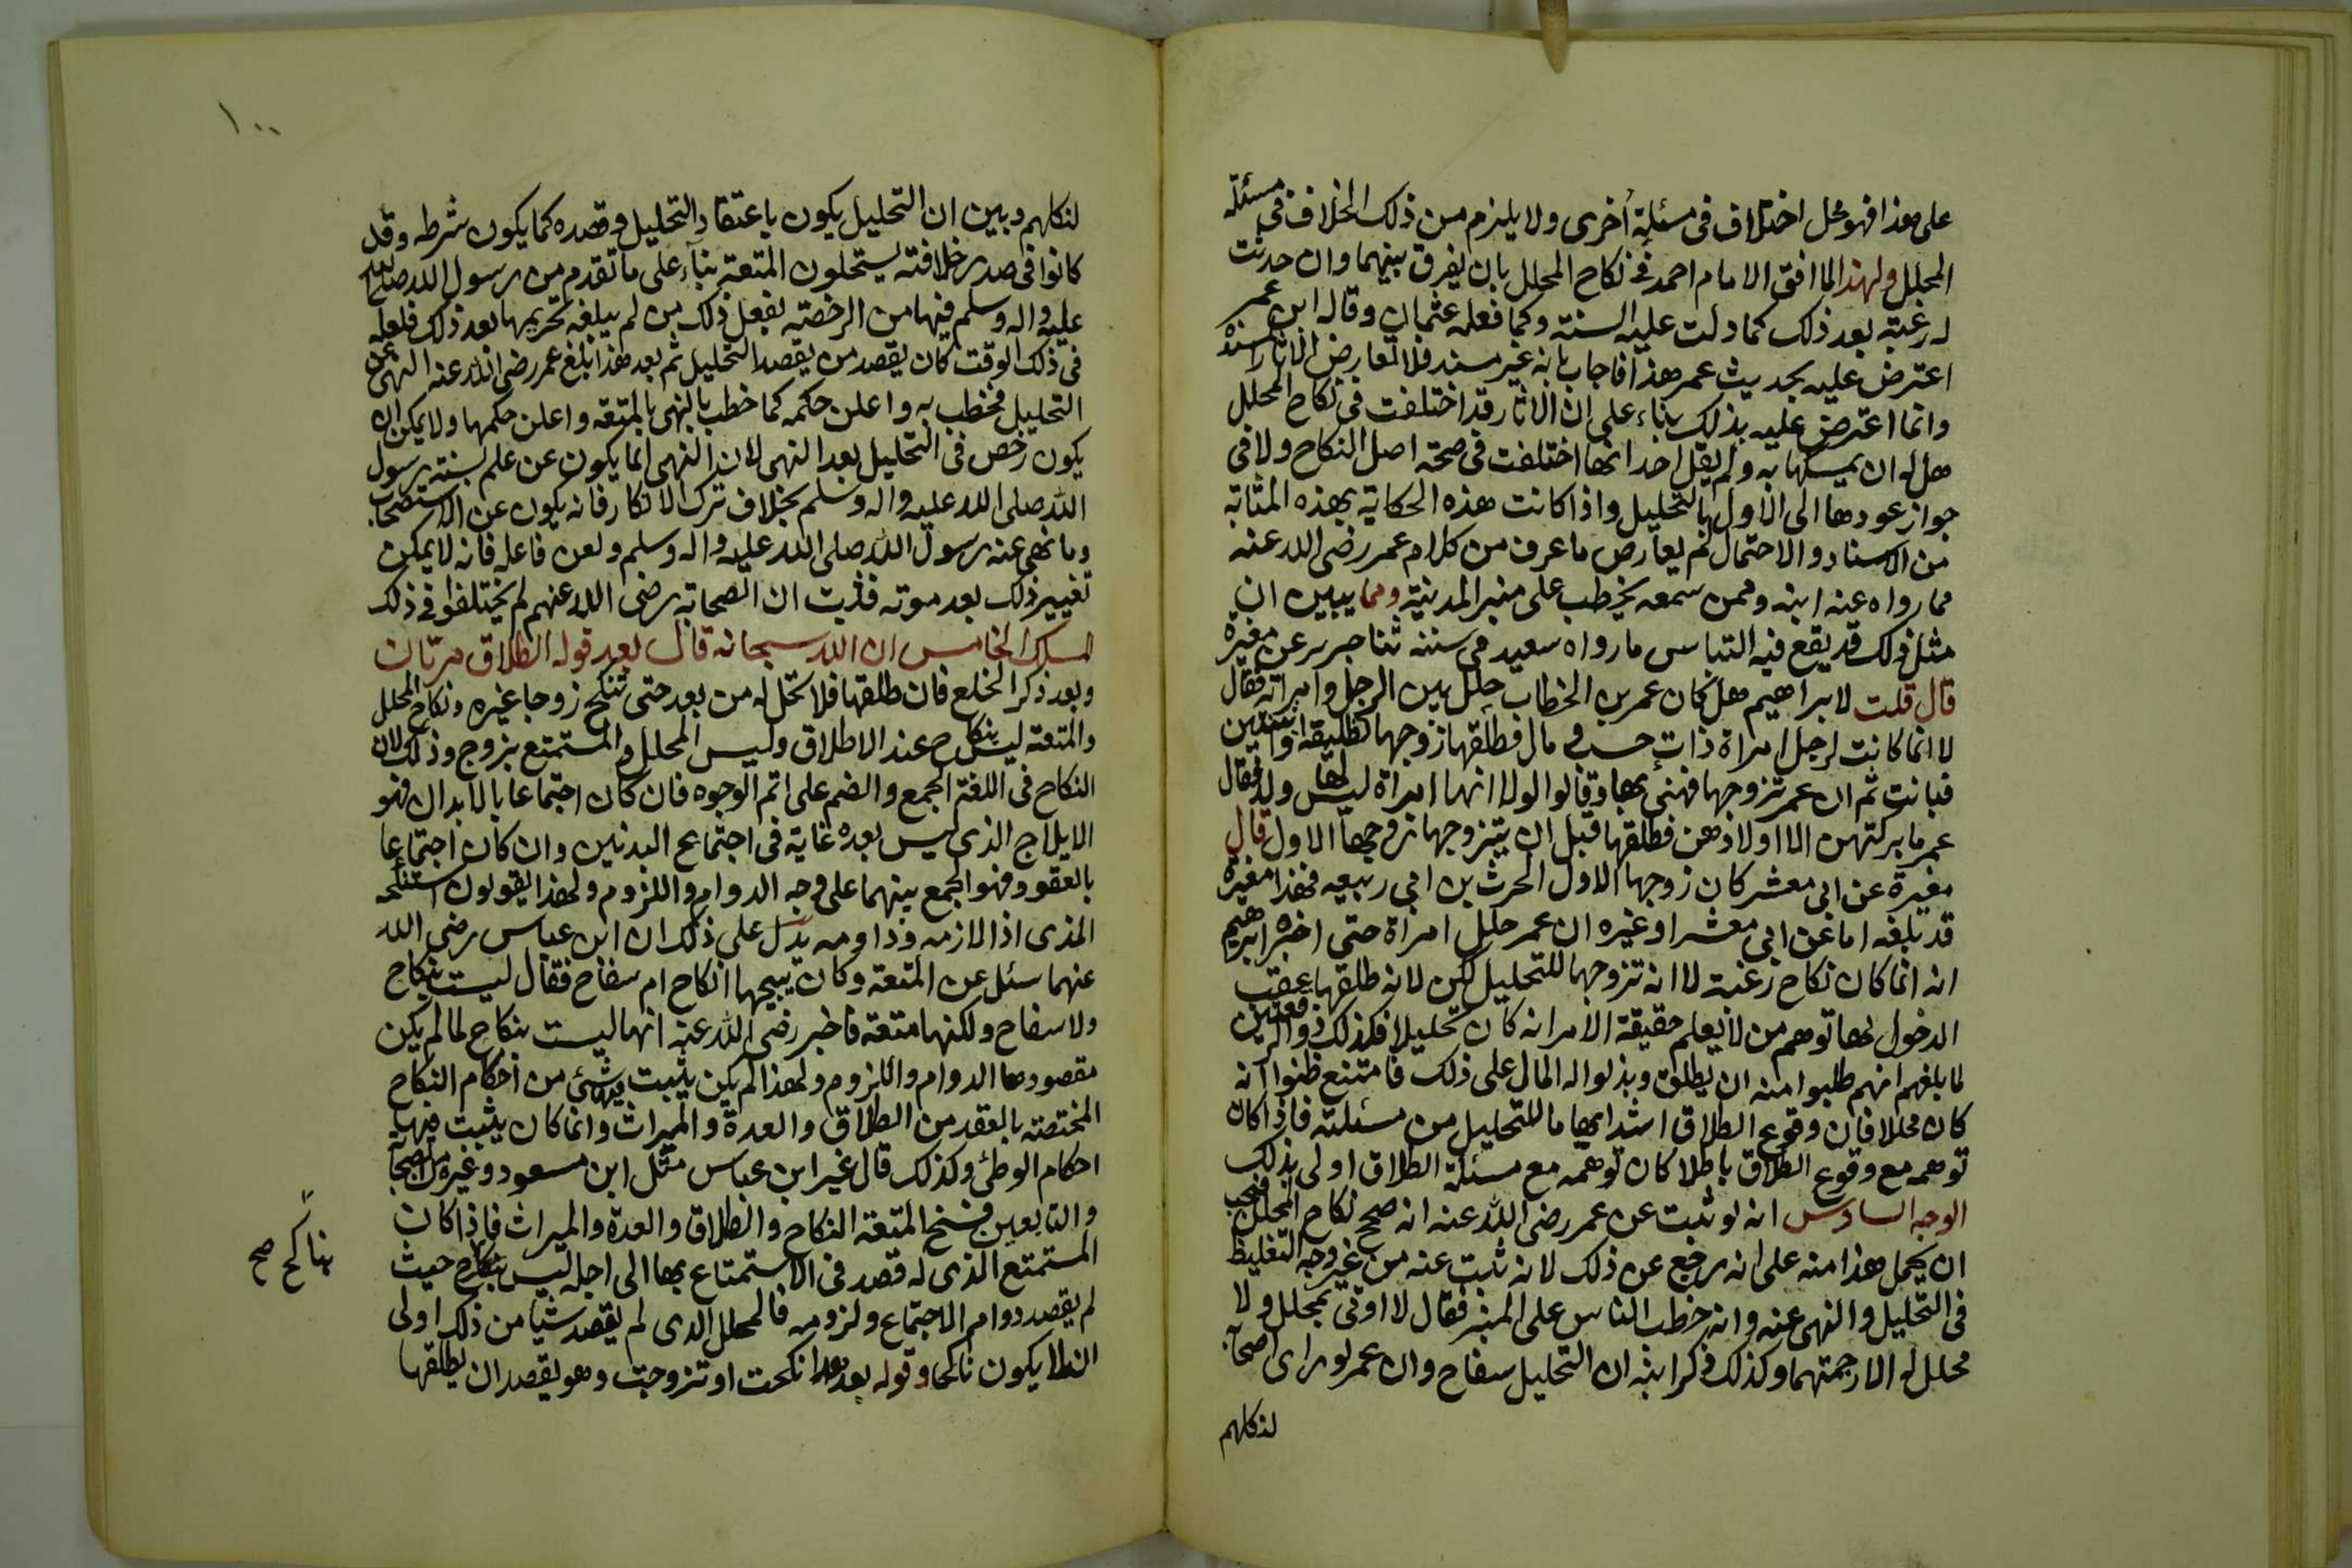 على هذا فهو محل اختلاف فى مسئلة أخرى ولا يلزم من ذلك الخلاف فى مسئلة
المحلل ولهذا لما افتى الامام احمد فى نكاح المحلل بان يفرق بينهما وان حدثت
له رغبة بعد ذلك كما دلت عليه السنة وكما فعله عثمان وقاله ابن عمر
اعترض عليه بحديث عمر هذا فاجاب بانه غير مسند فلا تعارض الاثار المسندة
وانما اعترض عليه بذلك بناء على ان الاثار قد اختلفت فى نكاح المحلل
هل له ان يمسكها به ولم يقل احد انها اختلفت فى صحة اصل النكاح ولا فى
جواز عودها الى الاول بالتحليل واذا كانت هذه الحكاية بهذه المثابة
من الاسناد والاحتمال لم يعارض ما عرف من كلام عمر رضى الله عنه
مما رواه عنه ابنه وممن سمعه يخطب على منبر المدينة ومما يبين ان
مثل ذلك قد يقع فيه التباس ما رواه سعيد فى سننه ثنا جرير عن مغيرة
قال قلت لابراهيم هل كان عمر بن الخطاب حلل بين الرجل وامراته فقال
لا انما كانت لرجل امراة ذات حسب ومال فطلقها زوجها تطليقة او اثنتين
فبانت ثم ان عمر تزوجها فهنى بها وقالوا لولا انها امراة ليس لها ولد فقال
عمر ما بركتهن الا اولادهن فطلقها قبل ان يتزوجها زوجها الاول قال
مغيرة عن ابى معشر كان زوجها الاول الحرث بن ابى ربيعه فهذا مغيرة
قد بلغه اما عن ابى معشر او غيره ان عمر حلل امراة حتى اخبره ابرهيم
انه انما كان نكاح رغبة لا انه تزوجها للتحليل لكن لانه طلقها عقب
الدخول بها توهم من لا يعلم حقيقة الامر انه كان تحليلا فكذلك ذو الرقعتين
لما بلغهم انهم طلبوا منه ان يطلق وبذلوا له المال على ذلك فامتنع ظنوا انه
كان محللا فان وقوع الطلاق اشد ايهاما للتحليل من مسئلته فاذا كان
توهمه مع وقوع الطلاق باطلا كان توهمه مع مسئلة الطلاق اولى بذلك
الوجه السادس انه لو ثبت عن عمر رضى الله عنه انه صحح نكاح المحلل فيجب
ان يحمل هذا منه على انه رجع عن ذلك لانه ثبت عنه من غير وجه التغليظ
فى التحليل والنهى عنه وانه خطب الناس على المنبر فقال لا اوتى بمحلل ولا
محلل له الا رجمتهما وكذلك ذكر ابنه ان التحليل سفاح وان عمر لو راى اصحابه
لنكلهم
١٠٠
لنكلهم وبين ان التحليل يكون باعتقاد التحليل وقصده كما يكون بشرطه وقد
كانوا فى صدر خلافته يستحلون المتعة بناء على ما تقدم من رسول الله صلى الله
عليه واله وسلم فيها من الرخصة بفعل ذلك من لم يبلغه تحريمها بعد ذلك فلعله
فى ذلك الوقت كان يقصد من يقصد التحليل ثم بعد هذا بلغ عمر رضى الله عنه النهى عن
التحليل فخطب به واعلن حكمه كما خطب بالنهى بالمتعه واعلن حكمها ولا يمكن ان
يكون رخص فى التحليل بعد النهى لان النهى انما يكون عن علم بسنة رسول
الله صلى الله عليه واله وسلم بخلاف ترك الانكار فانه يكون عن الاستصحاب
وما نهى عنه رسول الله صلى الله عليه واله وسلم ولعن فاعله فانه لا يمكن
تغيير ذلك بعد موته فثبت ان الصحابة رضى الله عنهم لم يختلفوا فى ذلك
المسلك الخامس ان الله سبحانه قال بعد قوله الطلاق مرتان
وبعد ذكر الخلع فان طلقها فلا تحل له من بعد حتى تنكح زوجا غيره ونكاح المحلل
والمتعة ليس بنكاح عند الاطلاق وليس المحلل والمستمتع بزوج وذلك لان
النكاح فى اللغة الجمع والضم على اتم الوجوه فان كان اجتماعا بالابدان فهو
الايلاج الذى ليس بعده غاية فى اجتماع البدنين وان كان اجتماعا
بالعقود فهو الجمع بينهما على وجه الدوام واللزوم ولهذا يقولون استنكحه
المذى اذا لازمه وداومه يدل على ذلك ان ابن عباس رضى الله
عنهما سئل عن المتعة وكان يبيحها انكاح ام سفاح فقال ليست بنكاح
ولا سفاح ولكنها متعة فاخبر رضى الله عنه انها ليست بنكاح لما لم يكن
مقصودها الدوام واللزوم ولهذا لم يكن يثبت فيها شئ من احكام النكاح
المختصة بالعقد من الطلاق والعدة والميراث وانما كان يثبت فيها
احكام الوطئ وكذلك قال غير ابن عباس مثل ابن مسعود وغيره من الصحابة
والتابعين فنسخ المتعة النكاح والطلاق والعدة والميراث فاذا كان
المستمتع الذى له قصد فى الاستمتاع بها الى اجل ليس بنكاح حيث
لم يقصد دوام الاجتماع ولزومه فالمحلل الذى لم يقصد شيا من ذلك اولى
ان لا يكون ناكحا وقوله بعد هذا نكحت او تزوجت وهو يقصد ان يطلقها
بناكح صح